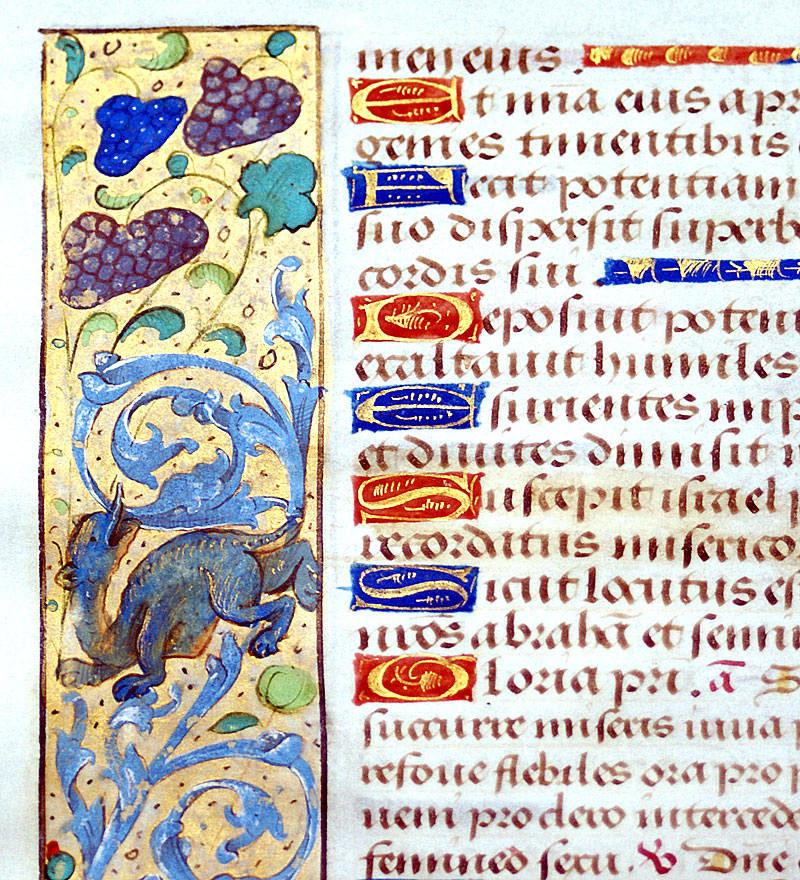 men eius.
Et mīa eius a pro
genies timentibus
Fecit potentiam
suo dispersit superb
cordis sui
Deposuit poten
exaltauit humiles
Esurientes imp
et diuites dimisit
Suscepit israel p
recordatus miserico
Sicut locutus es
nr̄os abrahā et semi
Gloria pri. ā S
succurre miseris iuua p
refoue flebiles ora pro p
ueni pro clero intercede
femineo sexu. ℣ Dn̄e